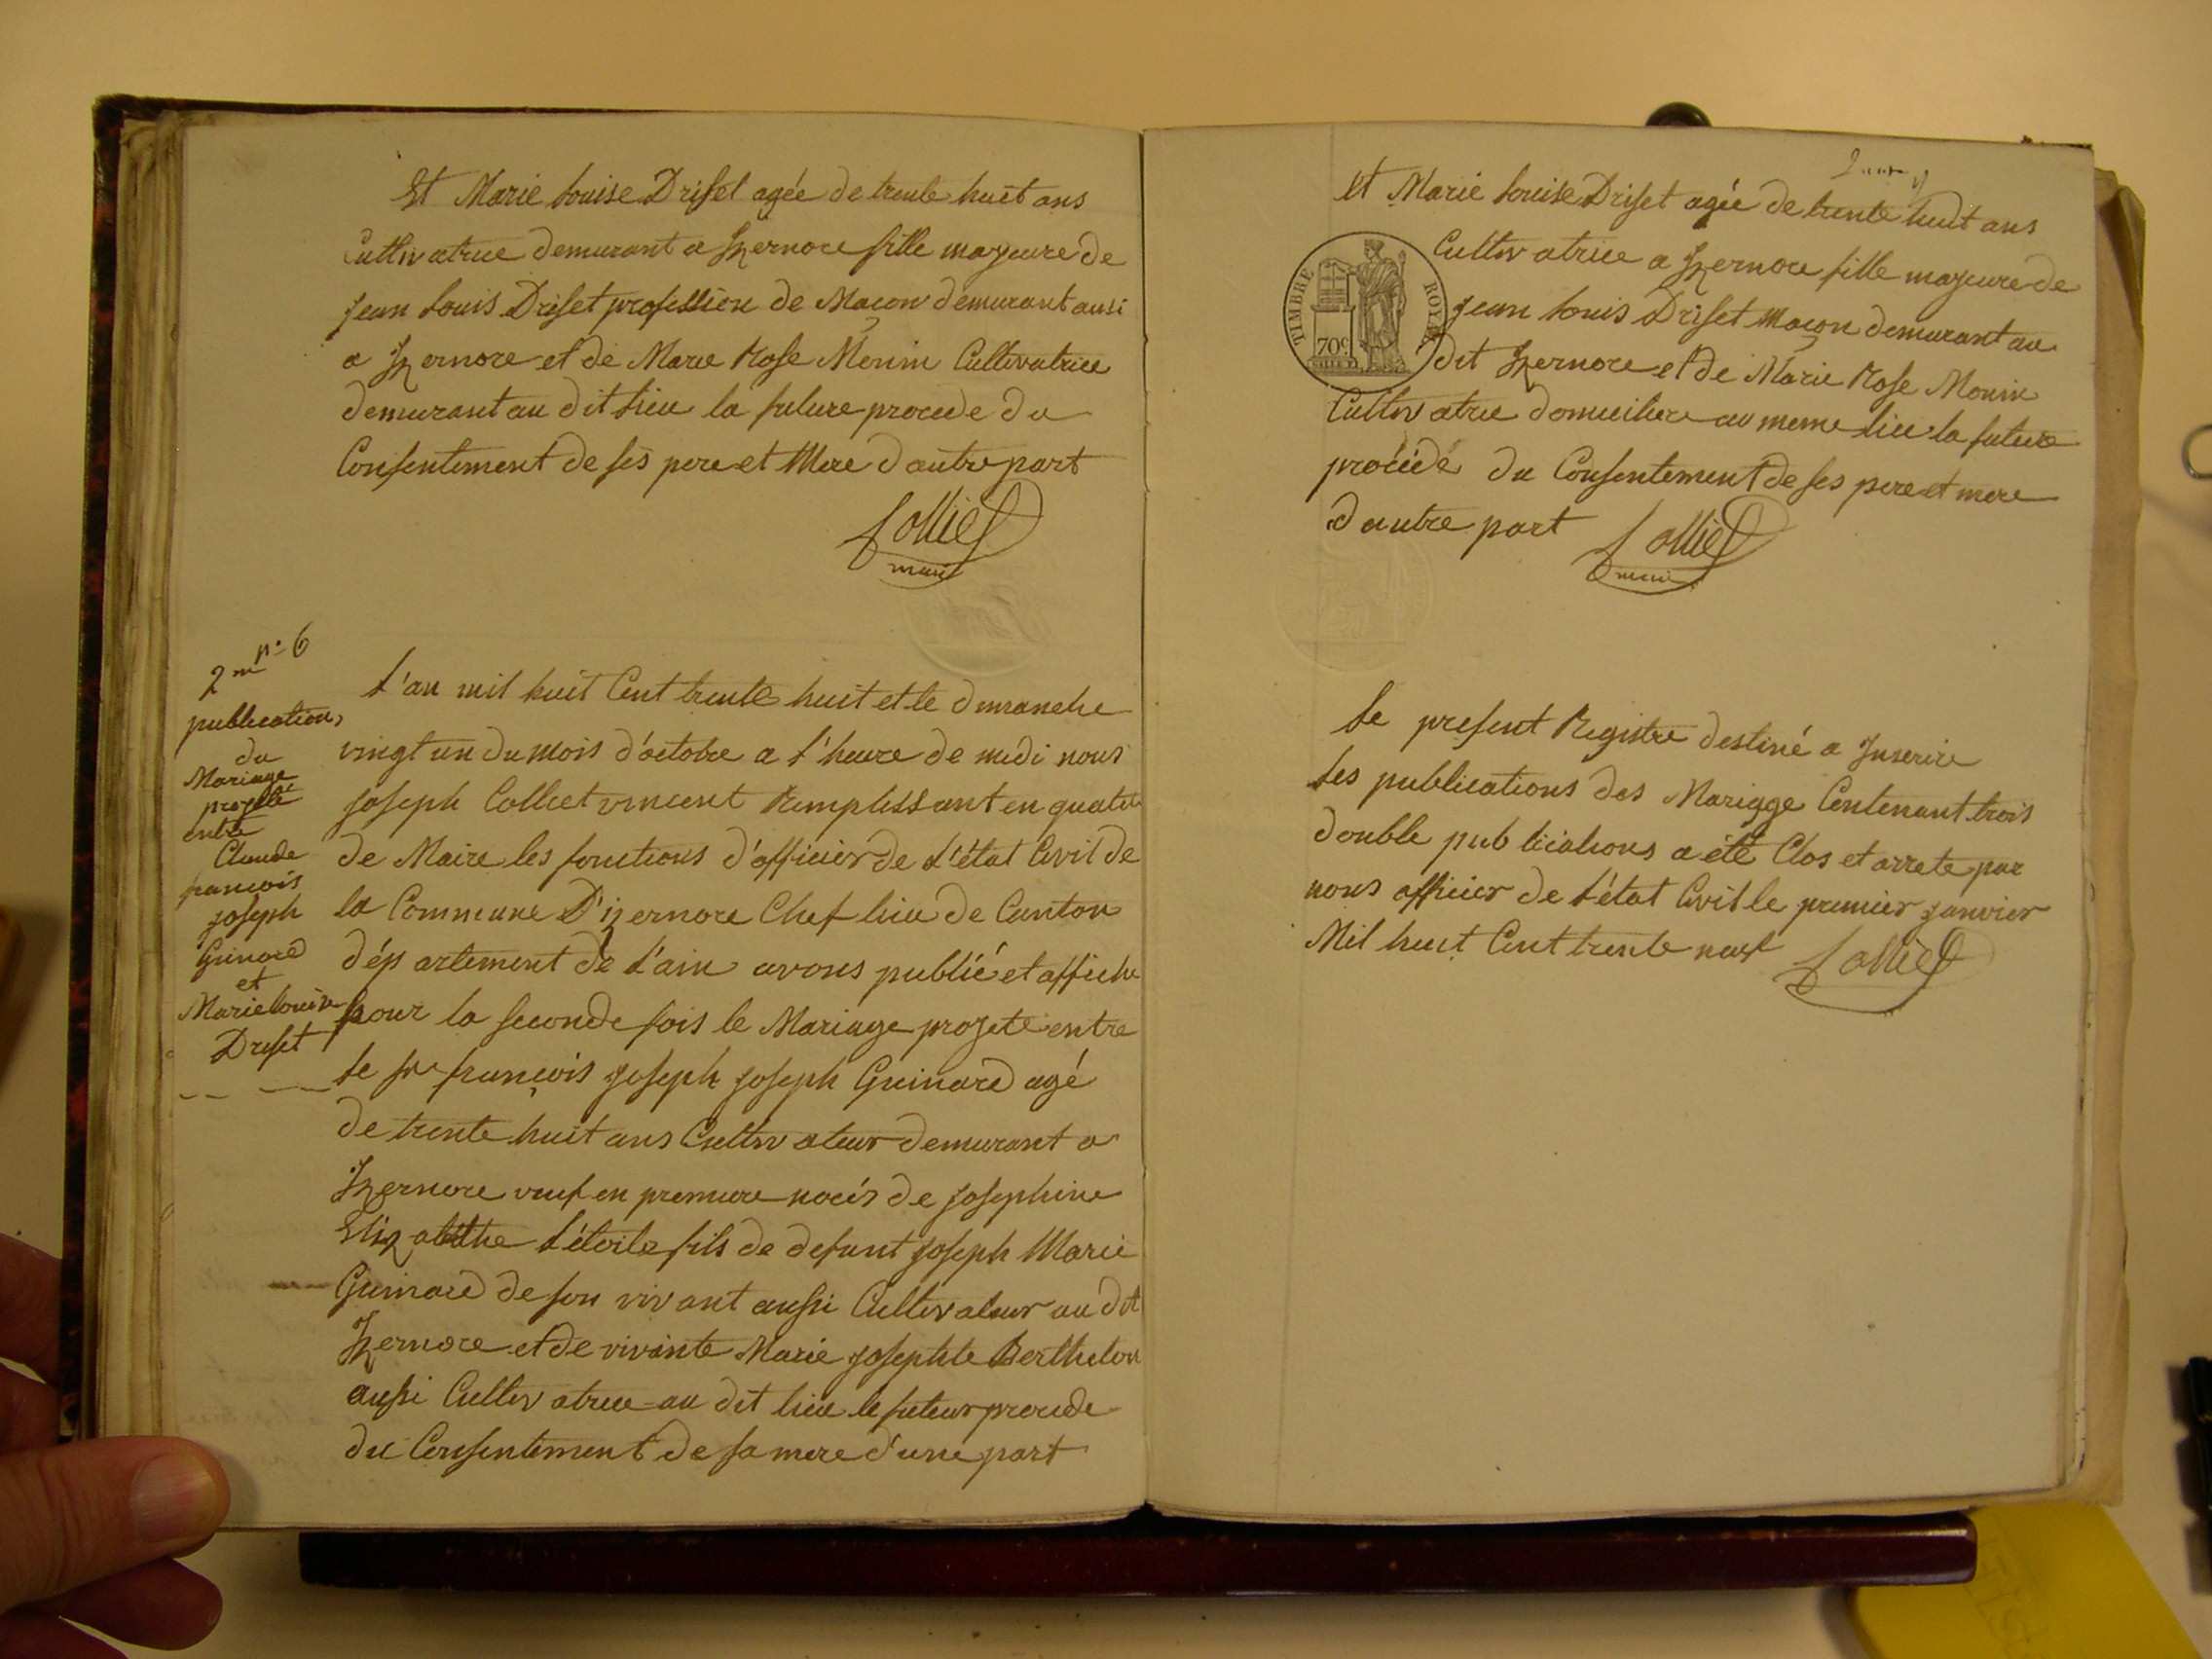 Et Marie Louise Driset agée de trente huit ans
Cultivatrice demurant a Izernore fille mayeure de
Jean Louis Driset profession de Maçon demurant aussi
a Izernore et de Marie Rose Monin Cultivatrice
demurant au dit Lieu la future procede du
Consentement de ses pere et Mere d'autre part
Colliet
maire
n° 6
2me
publication
du
Mariage
projeté
entre
Claude
francois
joseph
Guinard
et
Marie Louise
Driset
L'an mil huit Cent trente huit et le dimanche
vingt un du mois d'octobre a l'heure de midi nous
Joseph Colliet vincent Remplissant en qualité
de Maire les fonctions d'officier de L'état Civil de
la Commune D'izernore Chef lieu de Canton
département de L'ain avons publié et affiche
pour la seconde fois le Mariage projeté entre
Le sr françois joseph joseph Guinard agé
de trente huit ans Cultivateur demurant a
Izernore veuf en premiere noces de josephine
Elizabethe L'étoile fils de defunt joseph Marie
Guinard de son vivant aussi Cultivateur au dit
Izernore et de vivante Marie josephte Berthelon
aussi Cultivatrice au dit lieu le futeur procede
du Consentement de sa mere d'une part
Et Marie Louise Driset agée de trente huit ans
Cultivatrice a Izernore fille mayeure de
Jean Louis Driset Maçon demurant au
dit Izernore et de Marie Rose Monin
Cultivatrice domiciliere au meme Lieu la future
procede du Consentement de ses pere et mere
d'autre part Colliet
maire
TIMBRE ROYAL
70c
Le present Registre destiné a Inserire
Les publications des Mariage Contenant trois
double publiciations a été Clos et arrete par
nous officier de L'état Civil le premier janvier
Mil huit Cent trente neuf Colliet